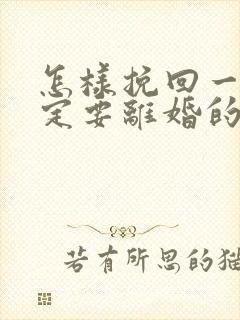 怎樣挽回一
定要離婚的
若有所思的猫